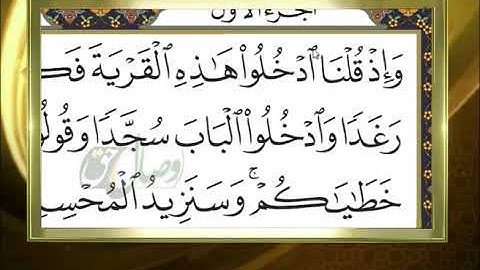 الجزء الأول
وَإِذْ قُلْنَا ٱدْخُلُوا۟ هَٰذِهِ ٱلْقَرْيَةَ فَكُ
رَغَدًا وَٱدْخُلُوا۟ ٱلْبَابَ سُجَّدًا وَقُولُو
خَطَٰيَٰكُمْ ۚ وَسَنَزِيدُ ٱلْمُحْسِ
وصال